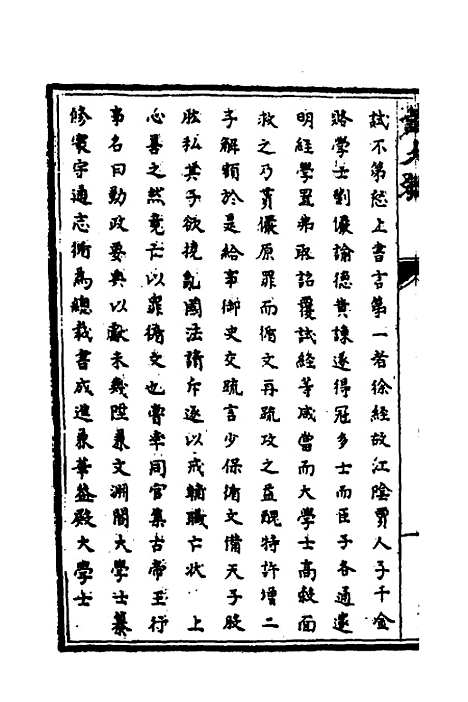 試不第愁上書言第一若徐經故江陰賈人子千金
賂學士劉儼諭德黄諫遂得冠多士而臣子各通邃
明經學置弗取詔覆試經等咸當而大學士高穀面
救之乃貰儼原罪而循文再疏攻之益醜特許增二
子解額於是給事御史交疏言少保循文備天子股
肱私其子欲撓亂國法請斥逐以戒輔職亡状　上
心善之然竟亡以罪循文也嘗率同官集古帝王行
事名曰勤政要典以獻未幾陞兼文淵閣大學士纂
修寰宇通志循爲總裁書成進兼華蓋殿大學士